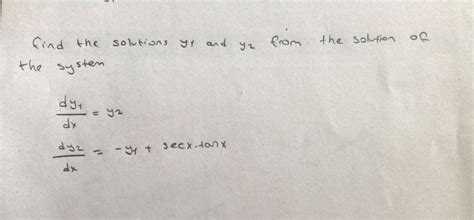 find the solutions y1 and y2 from the solution of
the system
dy1/dx = y2
dy2/dx = -y1 + secx.tanx